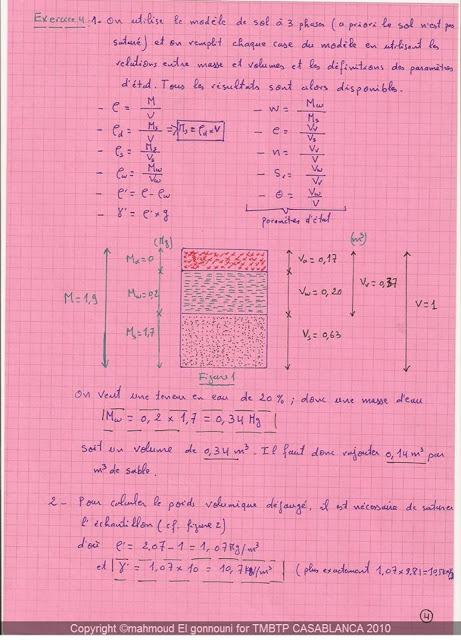 Exercice 4 1- On utilise le modèle de sol à 3 phases (a priori le sol n'est pas
saturé) et on remplit chaque case du modèle en utilisant les
relations entre masse et volumes et les définitions des paramètres
d'état. Tous les résultats sont alors disponibles.
- ρ = M/V
- ρd = Ms/V => Ms = ρd × V
- ρs = Ms/Vs
- ρw = Mw/Vw
- ρ' = ρ - ρw
- γ' = ρ' × g
- w = Mw/Ms
- e = Vv/Vs
- n = Vv/V
- Sr = Vw/Vv
- θ = Vw/V
paramètres d'état
(Mg)
(m³)
Ma = 0
Va = 0,17
M = 1,9
Mw = 0,2
Vw = 0,20
Vv = 0,37
V = 1
Ms = 1,7
Vs = 0,63
Figure 1
On veut une teneur en eau de 20% ; donc une masse d'eau
Mw = 0,2 × 1,7 = 0,34 Mg
soit un volume de 0,34 m³. Il faut donc rajouter 0,14 m³ par
m³ de sable.
2- Pour calculer le poids volumique déjaugé, il est nécessaire de saturer
l'échantillon (cf. figure 2)
d'où ρ' = 2,07 - 1 = 1,07 Mg/m³
et γ' = 1,07 × 10 = 10,7 kN/m³ (plus exactement 1,07 × 9,81 =
4
Copyright ©mahmoud El gonnouni for TMBTP CASABLANCA 2010